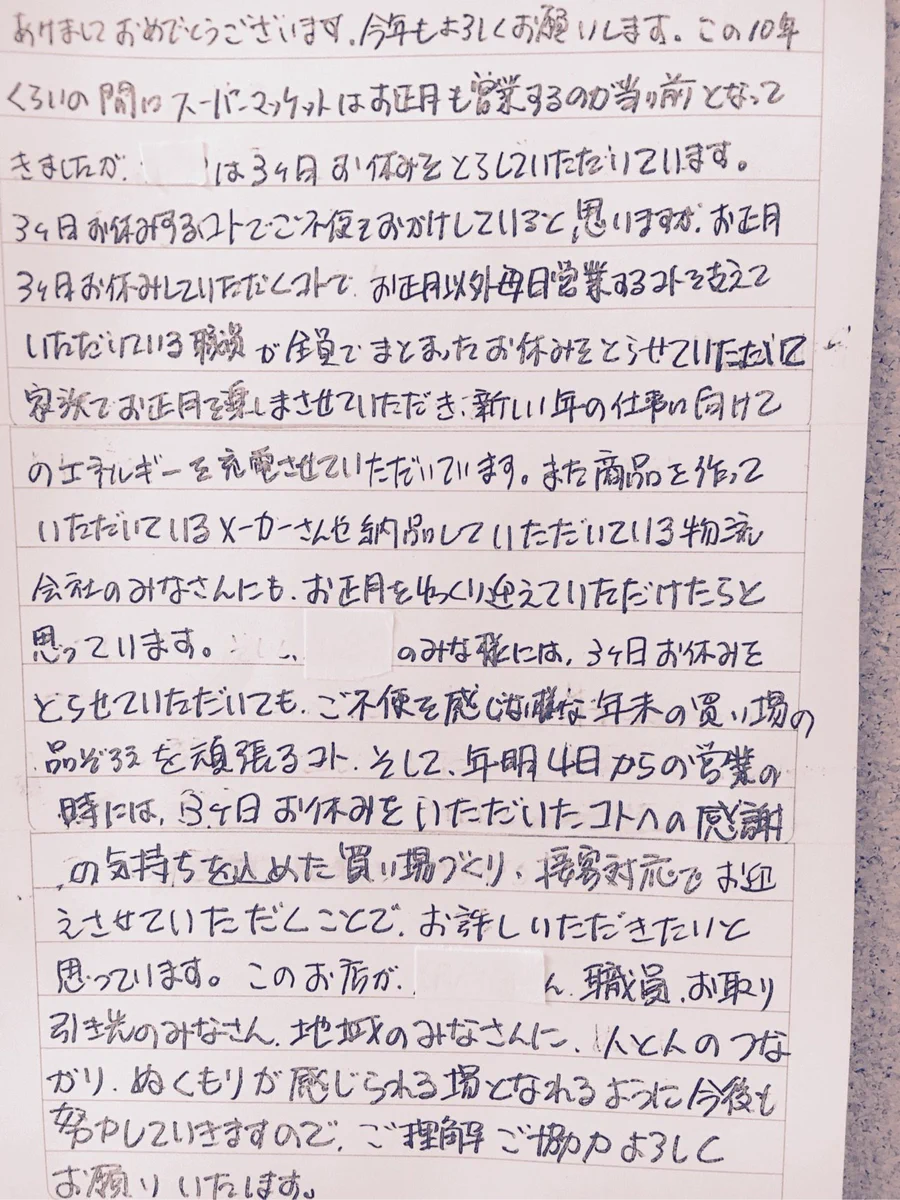 あけましておめでとうございます。今年もよろしくお願いします。この10年
くらいの間にスーパーマッケットはお正月も営業するのが当り前となって
きましたが、
は3ヶ日お休みをとらしていただいています。
3ヶ日お休みするコトでご不便をおかけしていると思いますが、お正月
3ヶ日お休みしていただくコトで、お正月以外毎日営業するコトを支えて
いただいている職員が全員でまとまったお休みをとらせていただいて
家族でお正月を楽しまさせていただき、新しい1年の仕事に向けて
のエネルギーを充電させていただいています。また商品を作って
いただいているメーカーさんや納品していただいている物流
会社のみなさんにも、お正月をゆっくり迎えていただけたらと
思っています。
のみな様には、3ヶ日お休みを
とらせていただいても、ご不便を感じない様な年末の買い場の
品ぞろえを頑張るコト、そして、年明4日からの営業の
時には、3ヶ日お休みをいただいたコトへの感謝
の気持ちを込めた買い場づくり、接客対応でお迎
えさせていただくことで、お許しいただきたいと
思っています。このお店が、
ん、職員、お取り
引き先のみなさん、地域のみなさんに、人と人のつな
がり、ぬくもりが感じられる場となれるように今後も
努力していきますので、ご理解ご協力よろしく
お願いいたします。